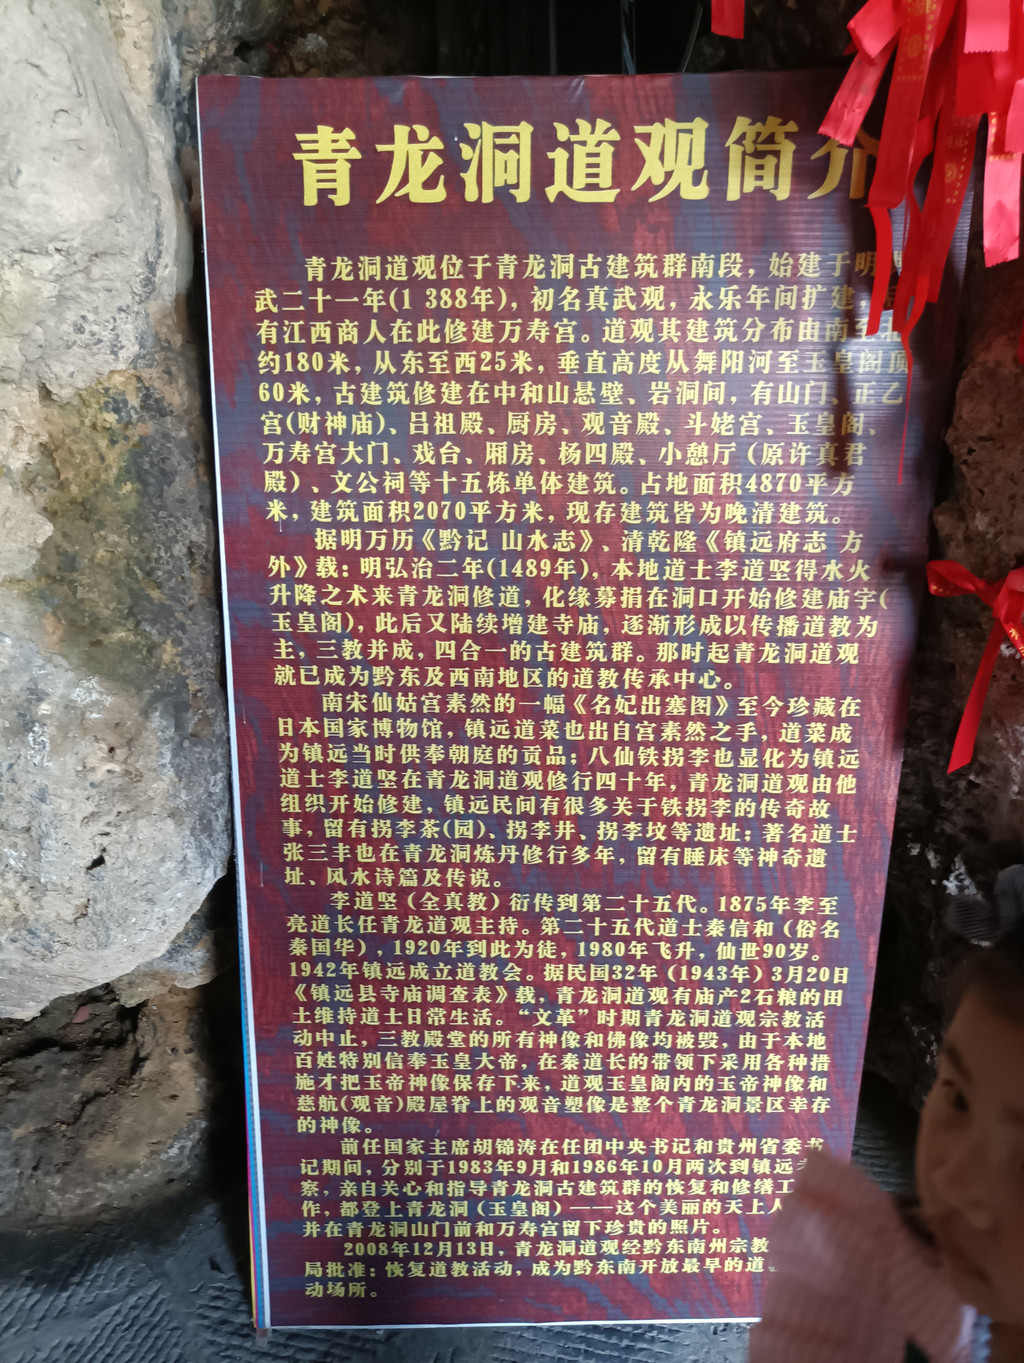 青龙洞道观简介
青龙洞道观位于青龙洞古建筑群南段，始建于明
武二十一年(1 388年)，初名真武观，永乐年间扩建，
有江西商人在此修建万寿宫。道观其建筑分布由南至北
约180米，从东至西25米，垂直高度从舞阳河至玉皇阁顶
60米，古建筑修建在中和山悬壁、岩洞间，有山门、正乙
宫(财神庙)、吕祖殿、厨房、观音殿、斗姥宫、玉皇阁、
万寿宫大门、戏台、厢房、杨四殿、小憩厅（原许真君
殿）、文公祠等十五栋单体建筑。占地面积4870平方
米，建筑面积2070平方米，现存建筑皆为晚清建筑。
据明万历《黔记 山水志》、清乾隆《镇远府志 方
外》载：明弘治二年(1489年)，本地道士李道坚得水火
升降之术来青龙洞修道，化缘募捐在洞口开始修建庙宇(
玉皇阁)，此后又陆续增建寺庙，逐渐形成以传播道教为
主，三教并成，四合一的古建筑群。那时起青龙洞道观
就已成为黔东及西南地区的道教传承中心。
南宋仙姑宫素然的一幅《名妃出塞图》至今珍藏在
日本国家博物馆，镇远道菜也出自宫素然之手，道菜成
为镇远当时供奉朝庭的贡品；八仙铁拐李也显化为镇远
道士李道坚在青龙洞道观修行四十年，青龙洞道观由他
组织开始修建，镇远民间有很多关于铁拐李的传奇故
事，留有拐李茶(园)、拐李井、拐李坟等遗址；著名道士
张三丰也在青龙洞炼丹修行多年，留有睡床等神奇遗
址、风水诗篇及传说。
李道坚（全真教）衍传到第二十五代。1875年李至
亮道长任青龙道观主持。第二十五代道士秦信和（俗名
秦国华），1920年到此为徒，1980年飞升，仙世90岁。
1942年镇远成立道教会。据民国32年（1943年）3月20日
《镇远县寺庙调查表》载，青龙洞道观有庙产2石粮的田
土维持道士日常生活。“文革”时期青龙洞道观宗教活
动中止，三教殿堂的所有神像和佛像均被毁，由于本地
百姓特别信奉玉皇大帝，在秦道长的带领下采用各种措
施才把玉帝神像保存下来，道观玉皇阁内的玉帝神像和
慈航(观音)殿屋脊上的观音塑像是整个青龙洞景区幸存
的神像。
前任国家主席胡锦涛在任团中央书记和贵州省委书
记期间，分别于1983年9月和1986年10月两次到镇远考
察，亲自关心和指导青龙洞古建筑群的恢复和修缮工
作，都登上青龙洞（玉皇阁）——这个美丽的天上人
并在青龙洞山门前和万寿宫留下珍贵的照片。
2008年12月13日，青龙洞道观经黔东南州宗教
局批准：恢复道教活动，成为黔东南开放最早的道
动场所。